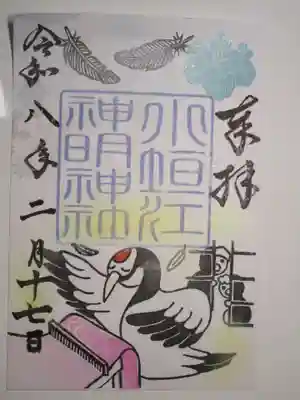 奉拝
小垣江
神明神社
令和八年二月十七日